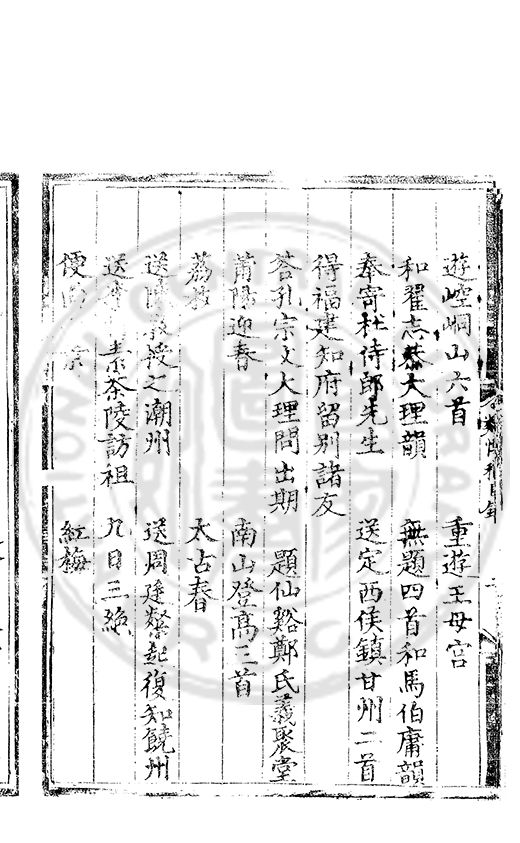 遊崆峒山六首　重遊王母宫
和翟志恭大理韻　無題四首和馬伯庸韻
奉寄杜侍郎先生　送定西侯鎮甘州二首
得福建知府留别諸友
荅孔宗文大理問出期　題仙谿鄭氏義聚堂
莆陽迎春　南山登髙三首
荔枝　太古春
送陳教授之潮州　送周廷縏起復知饒州
送 素茶陵訪祖　九日三絶
便面 京　紅梅
目録